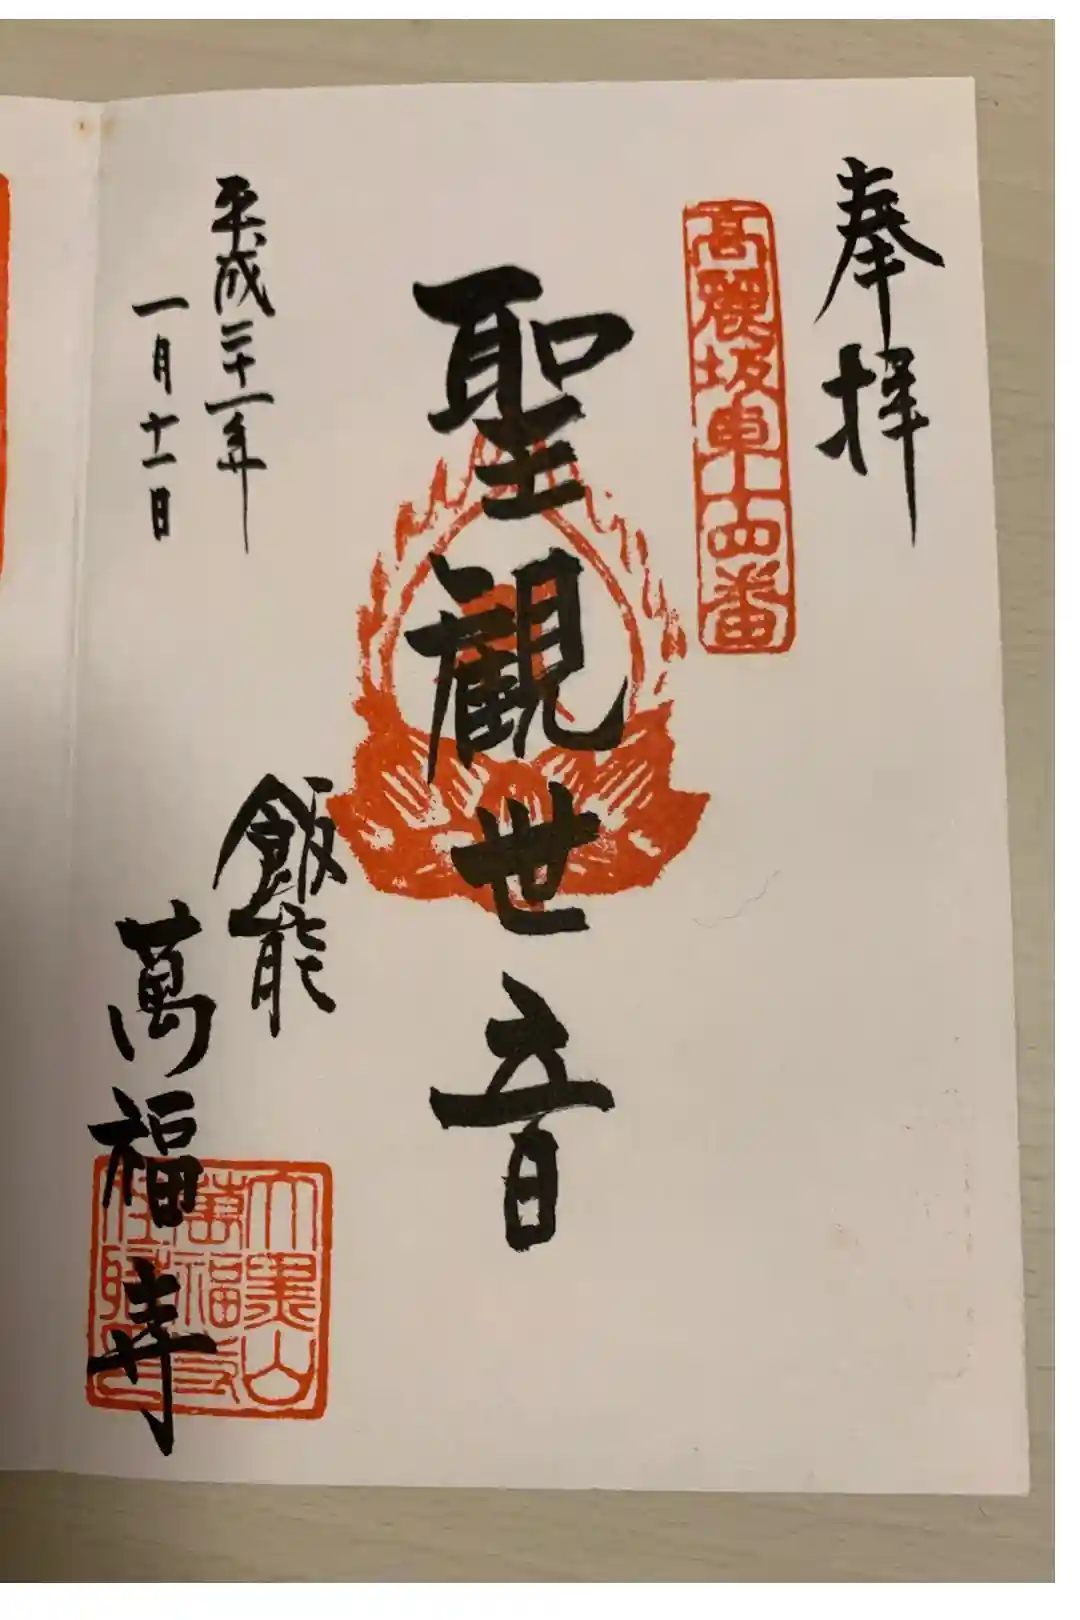 奉拝
高麗坂東十四番
聖観世音
平成二十一年
一月十一日
飯能
萬福寺
大黒山
萬福寺